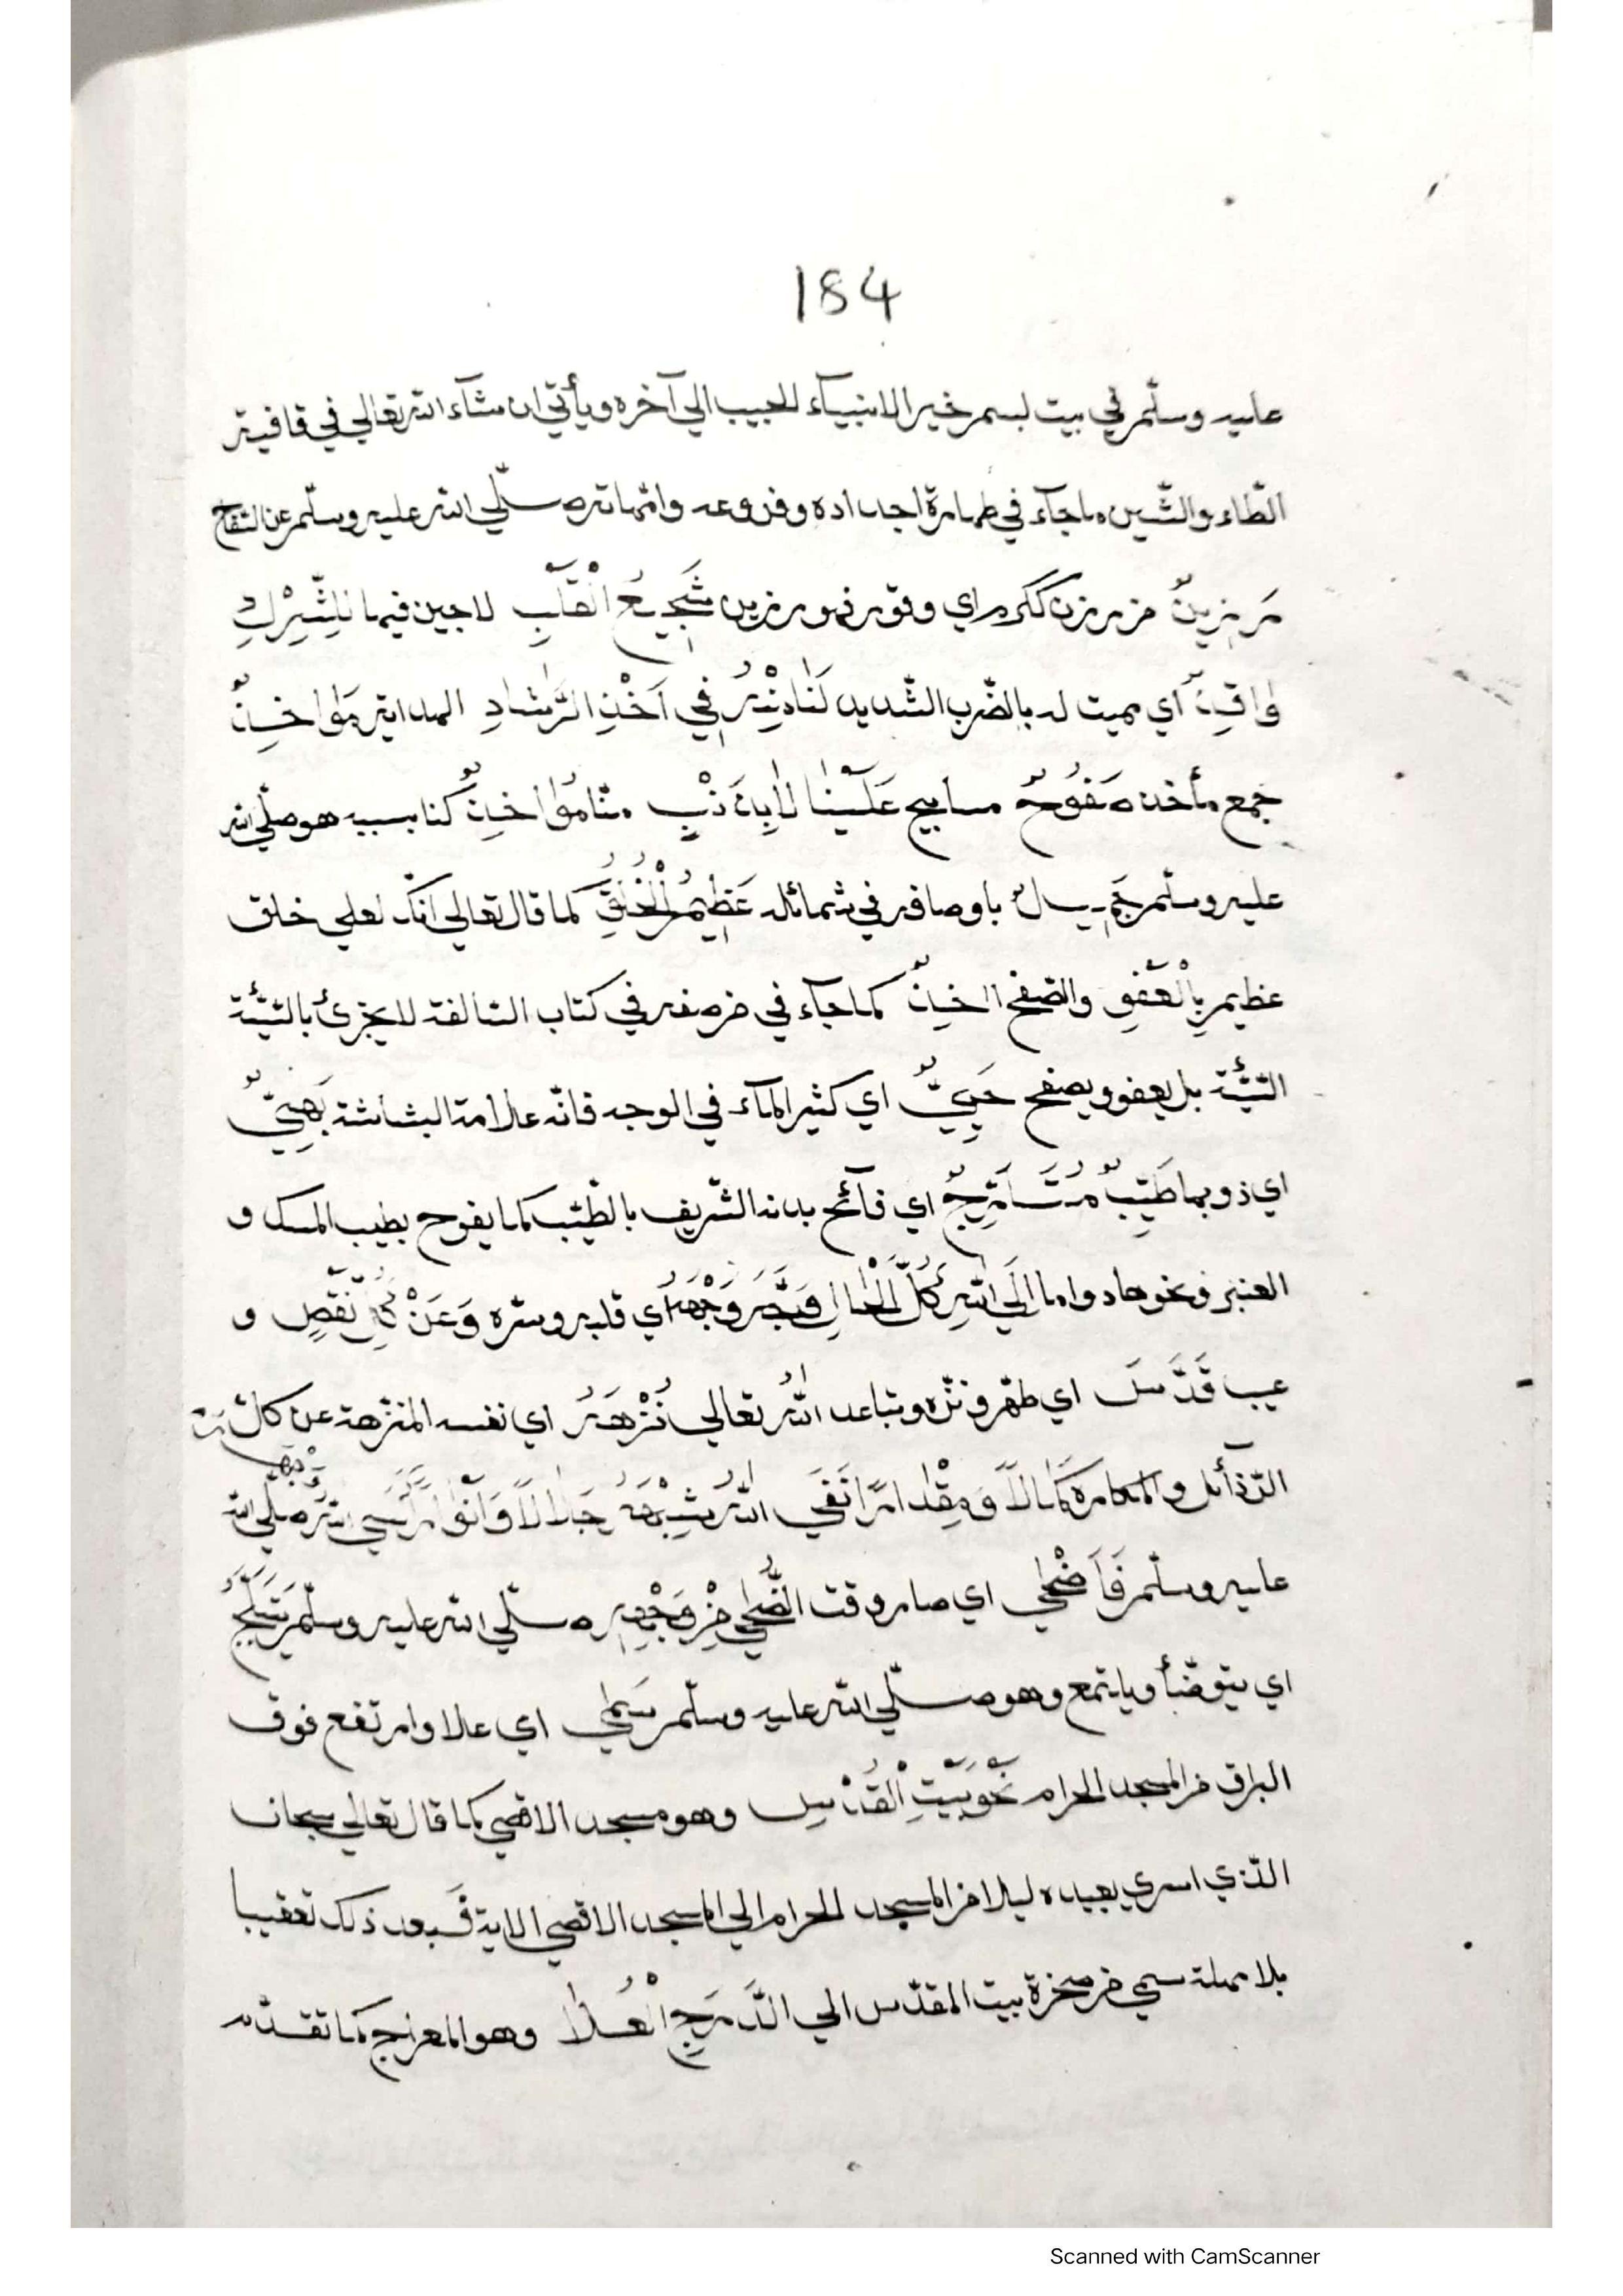 184
عليه وسلّم في بيت لبسم خير الانبياء للحبيب الي آخره ويأتي ان شاء الله تعالي في قافية
الطّاء والشّين ما جآء في طهارة اجداده وفروعه وامّهاته صلّي الله عليه وسلّم عن السّفاح
رَزِينٌ من رزن ككرم اي وقور فهو رزين شَجِيعُ الْقَلْبِ لا جبن فيما لِلشِّرْكِ
وَاقِذٌ اي مميت له بالضّرب الشّديد لَنَا نِذْرُ فِي اَخْذِ الرَّشَادِ الهداية مَوَاخِذٌ
جمع مأخذ صَفُوحٌ مسامح عَلَيْنَا لَا بِذَنْبٍ منّا مُوَاخِذٌ كنا بسببه هو صلّي الله
عليه وسلّم جَمِيلٌ باوصافه في شمائله عَظِيمُ الْخُلْقِ كما قال تعالي انّك لعلي خلق
عظيم بِالْعَفْوِ والصّفح اخذٌ كما جآء في من صفته في كتاب السّالفة لا يجزئ بالسّيّئة
السّيّئة بل يعفو ويصفح حَيِيٌّ اي كثير المآء في الوجه فانّه علامة البشاشة بَهِيٌّ
اي ذو بها طَيِّبٌ مُتَارِّجٌ اي فآئح بدنه الشّريف بالطّيّب كما يفوح بطيب المسك و
العنبر ونحوهاد واما اِلَي اللهِ كُلَّ الْحَالِ وَجَّهَ وَجْهَهُ اي قلبه وسرّه وَعَنْ كُلِّ نَقْصٍ و
عيب قَدَّسَ اي طهّر ونزّه وتباعد اللهُ تعالي نُزْهَهُ اي نفسه المنزّهة عن كلّ
الرّذآئل والمكاره كَمَالًا وَمِقْدَارًا نَفَي اللهُ شِبْهَهُ جَلَالًا وَاَنْوَارًا كَسَي اللهُ وَجْهَهُ صلّي الله
عليه وسلّم فَاَضْحَي اي صار وقت الضُّحَي مِنْ وَجْهِهِ صلّي الله عليه وسلّم يَتَبَلَّجُ
اي يتوضّأ ويلتمع وهو صلّي الله عليه وسلّم سَمَي اي علا وارتفع فوق
البراق من المسجد الحرام نَحْوَ بَيْتِ الْقُدْسِ وهو مسجد الاقصي كما قال تعالي سبحان
الّذي اسري بعبده ليلا من المسجد الحرام الي المسجد الاقصي الاية فَبعد ذلك تعقيبا
بلا مهلة سمي من صخرة بيت المقدّس الي الدَّرَجِ الْعُلَا وهو المعراج كما تقدّم
Scanned with CamScanner